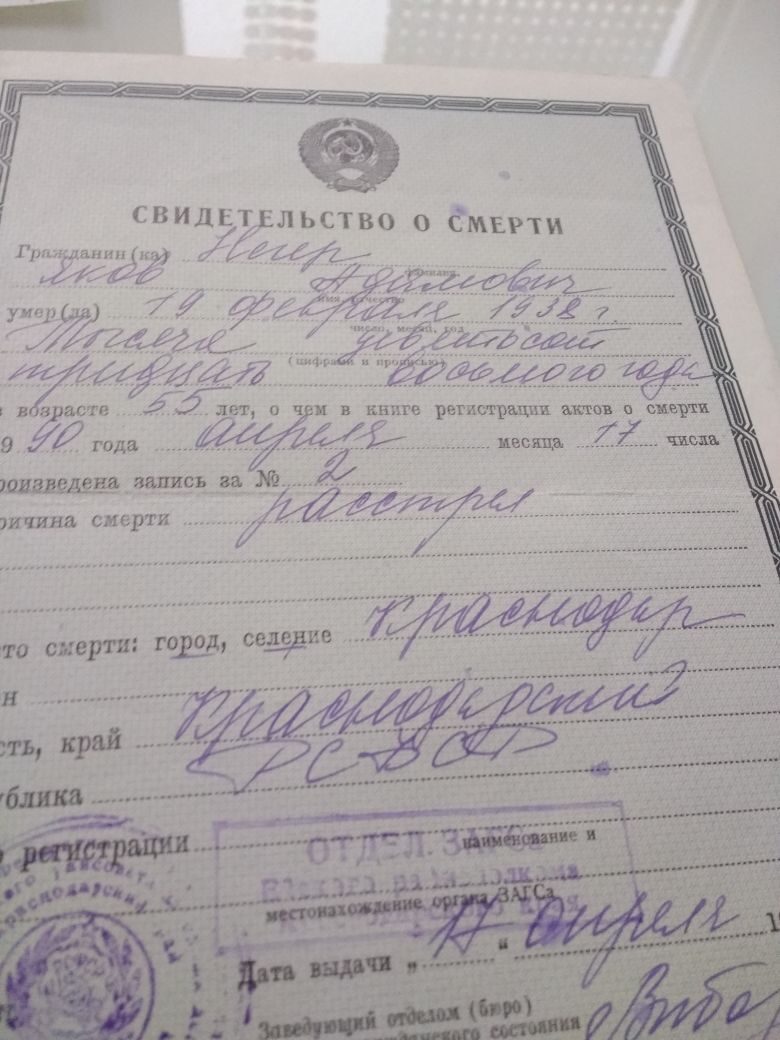 СВИДЕТЕЛЬСТВО О СМЕРТИ
Гражданин(ка) Негер
фамилия
Яков Адамович
имя, отчество
умер(ла) 19 февраля 1938 г.
число, месяц, год
Тысяча девятьсот
(цифрами и прописью)
тридцать восьмого года
в возрасте 55 лет, о чем в книге регистрации актов о смерти
19 90 года апреля месяца 17 числа
роизведена запись за № 2
ричина смерти расстрел
то смерти: город, селение Краснодар
н
сть, край Краснодарский
ублика РСФСР
регистрации
наименование и
ОТДЕЛ ЗАГСа
местонахождение органа ЗАГСа
края
Краснодарский край
Дата выдачи „ 17 “ апреля 1
Заведующий отделом (бюро)
жданского состояния